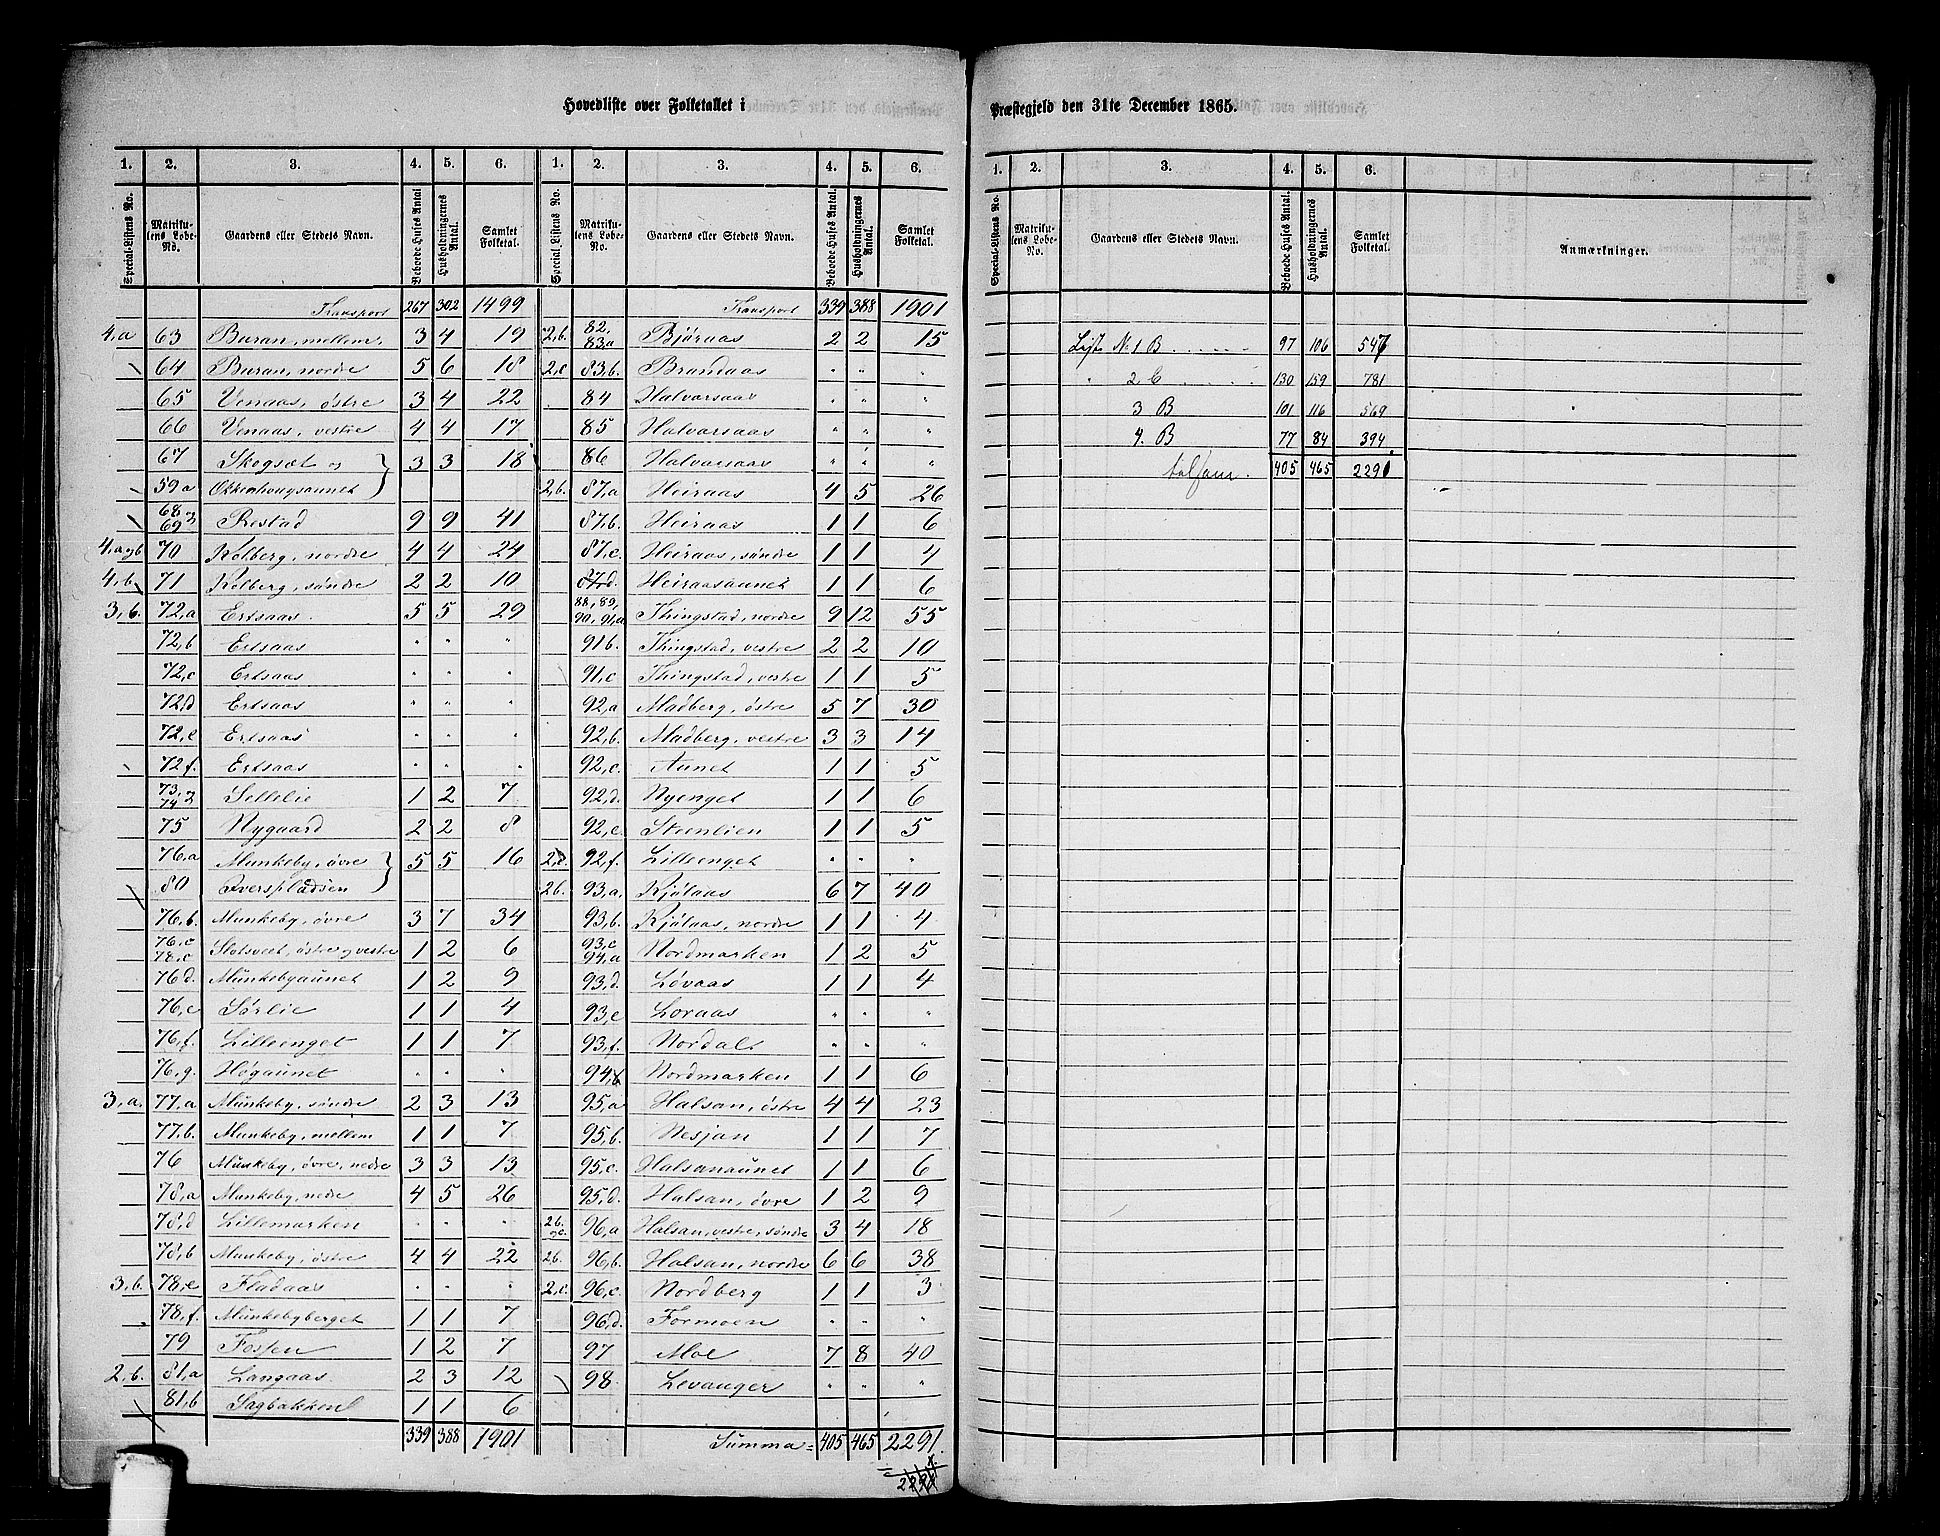 Hovedliste over Folketallet i
Præstegjeld den 31te December 1865.
1. 2. 3. 4. 5. 6. 1. 2. 3. 4. 5. 6.
Special-Listens No. Matrikulens Løbe-No. Gaardens eller Stedets Navn. Beboede Huses Antal. Husholdningernes Antal. Samlet Folketal. Special-Listens No. Matrikulens Løbe-No. Gaardens eller Stedets Navn. Beboede Huses Antal. Husholdningernes Antal. Samlet Folketal.
Transport 267 302 1499
4,a 63 Buran, mellem 3 4 19
64 Buran, nordre 5 6 18
65 Venaas, østre 3 4 22
66 Venaas, vestre 4 4 17
67 Skogsæt og 3 3 18
59 a Okkenhougsaunet
68 69 Restad 9 9 41
4,a og b 70 Kolberg, nordre 4 4 24
4,b 71 Kolberg, søndre 2 2 10
3,b. 72,a Ertsaas 5 5 29
72,b Ertsaas " " "
72,c Ertsaas " " "
72,d Ertsaas " " "
72,e Ertsaas " " "
72,f. Ertsaas " " "
73, 74 Sellelie 1 2 7
75 Nygaard 2 2 8
76,a Munkeby, øvre 5 5 16
80 Qverspladsen
76,b. Munkeby, øvre 3 7 34
76,c 78,c Slotsveet, østre og vestre 1 2 6
76 d. Munkebyaunet 1 2 9
76,e Sørlie 1 1 4
76,f. Lilleenget 1 1 7
76,g. Høgaunet " " "
3,a. 77,a Munkeby, søndre 2 3 13
77,b. Munkeby, mellem 1 1 7
76 Munkeby, øvre, nedre 3 3 13
78,a Munkeby, nedre 4 5 26
78,d Lillemarken " " "
78,b Munkeby, østre 4 4 22
3,b. 78,e Fladaas " " "
78,f. Munkebyberget 1 1 7
79 Fossen 1 2 7
2,b. 81,a Langaas 2 3 12
81,b Sagbakken 1 1 6
339 388 1901
Transport 339 388 1901
2,b. 82, 83,a Bjøraas 2 2 15
2,c 83,b. Brandaas " " "
84 Halvarsaas " " "
85 Halvarsaas " " "
86 Halvarsaas " " "
2,b. 87,a Heiraas 4 5 26
87,b. Heiraas 1 1 6
87,c. Heiraas, søndre 1 1 4
87,d. Heiraasaunet 1 1 6
88, 89, 90, 91,a Thingstad, nordre 9 12 55
91 b. Thingstad, vestre 2 2 10
91,c Thingstad, vestre 1 1 5
92,a Madberg, østre 5 7 30
92,b. Madberg, vestre 3 3 14
92,c. Aunet 1 1 5
92,d. Nyenget 1 1 6
92,e. Steenlien 1 1 5
2,c. 92,f. Lilleenget " " "
2 b. 93,a, Kjølaas 6 7 40
93,b. Kjølaas, nordre 1 1 4
93,c 94,a Nordmarken 1 2 5
93,d. Løvaas 1 1 4
93,e Loraas " " "
93,f. Nordal " " "
94,b Nordmarken 1 1 6
95,a Halsan, østre 4 4 23
95,b. Nesjan 1 1 7
95,c. Halsanaunet 1 1 6
95,d. Halsan, øvre 1 2 9
2 b. og c. 96,a Halsan, vestre, søndre 3 4 18
2 b. 96,b. Halsan, nordre 6 6 38
2,c. 96,c Nordberg 1 1 3
96,d. Formoen " " "
97 Moe 7 8 40
98. Levanger " " "
Summa = 405 465 2291.
1. 2. 3. 4. 5. 6.
Special-Listens No. Matrikulens Løbe-No. Gaardens eller Stedets Navn. Beboede Huses Antal. Husholdningernes Antal. Samlet Folketal. Anmærkninger.
Liste N. 1 B 97 106 547
" 2 C 130 159 781
3 B 101 116 569
4. B 77 84 394
405 465 2291